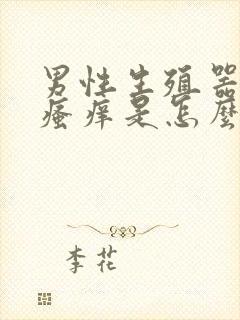 男性生殖器
瘙痒是怎麼
李花